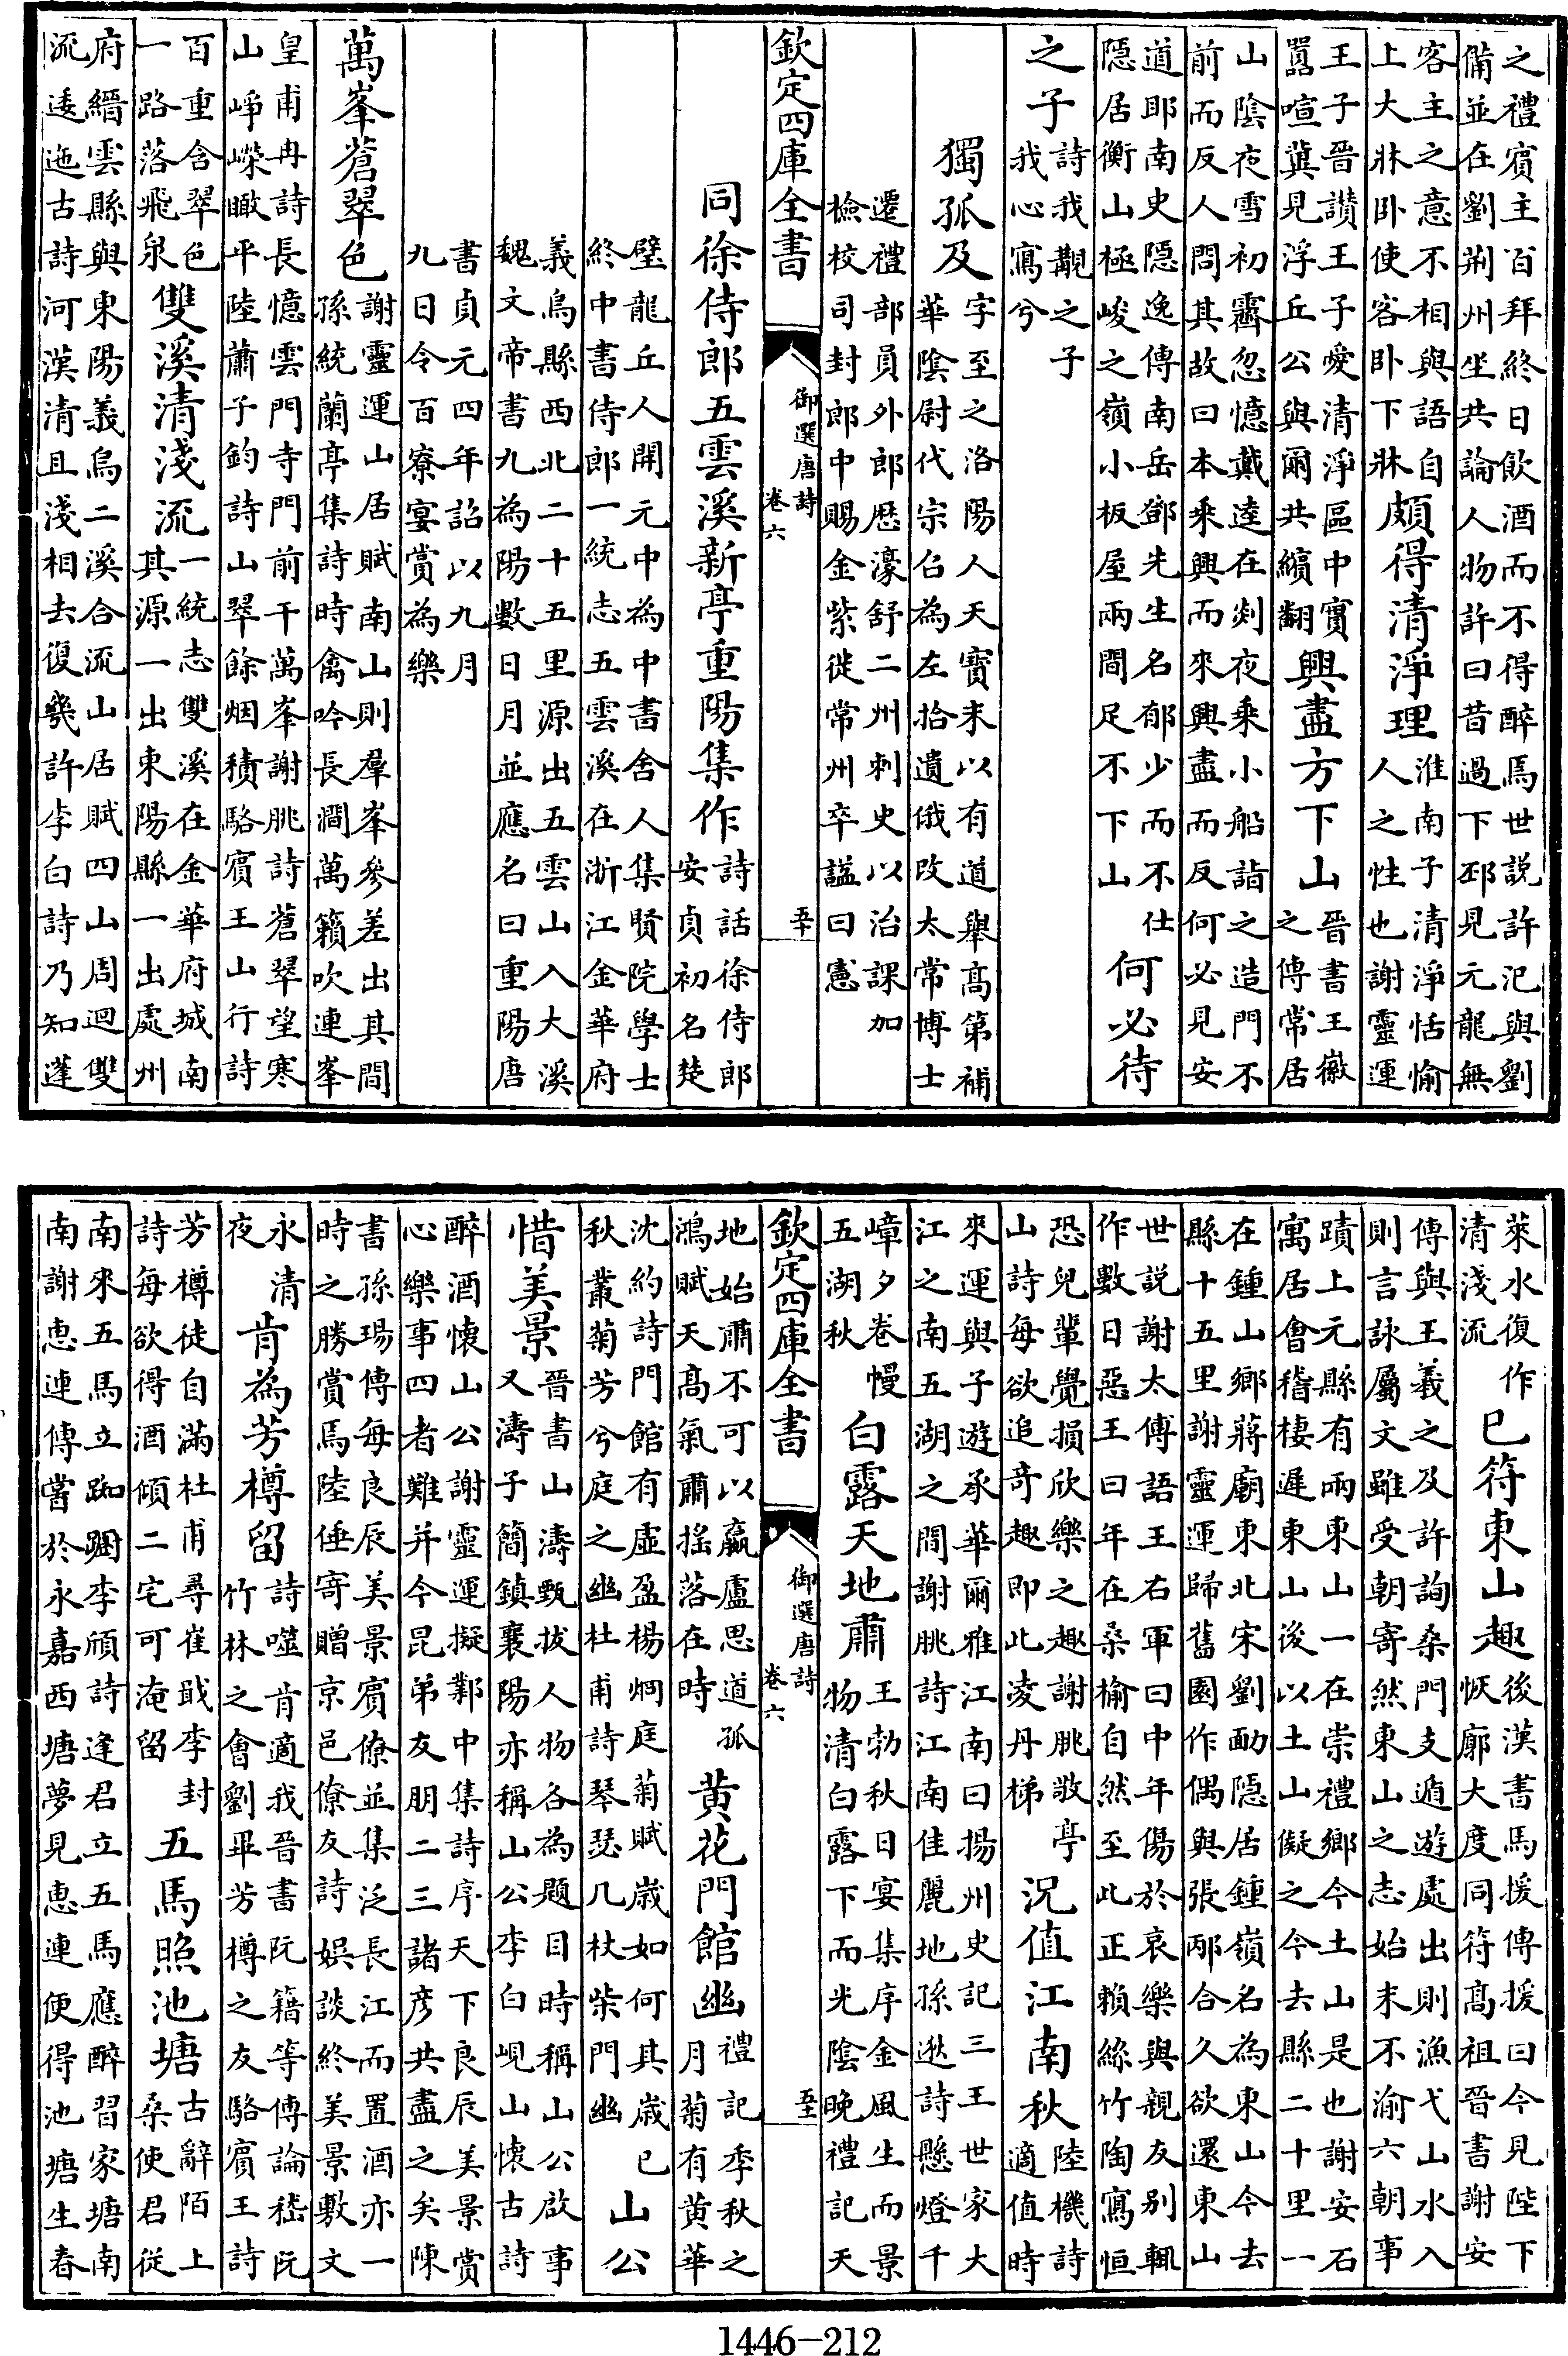 之禮賓主百拜終日飲酒而不得醉焉世説許汜與劉
備並在劉荊州坐共論人物許曰昔過下邳見元龍無
客主之意不相與語自
上大牀卧使客卧下牀
頗得清淨理
淮南子清淨恬愉
人之性也謝靈運
王子晉讚王子愛清淨區中實
囂喧冀見浮丘公與爾共繽翻
興盡方下山
晉書王徽
之傳常居
山陰夜雪初霽忽憶戴逵在剡夜乘小船詣之造門不
前而反人問其故曰本乘興而來興盡而反何必見安
道耶南史隱逸傳南岳鄧先生名郁少而不仕
隱居衡山極峻之嶺小板屋兩間足不下山
何必待
之子
詩我覯之子
我心寫兮
獨孤及
字至之洛陽人天寶末以有道舉高第補
華陰尉代宗召為左拾遺俄改太常博士
遷禮部員外郎歴濠舒二州刺史以治課加
檢校司封郎中賜金紫徙常州卒謚曰憲
欽定四庫全書
御選唐詩
卷六
五十
同徐侍郎五雲溪新亭重陽集作
詩話徐侍郎
安貞初名楚
璧龍丘人開元中為中書舍人集賢院學士
終中書侍郎一統志五雲溪在浙江金華府
義烏縣西北二十五里源出五雲山入大溪
魏文帝書九為陽數日月並應名曰重陽唐
書貞元四年詔以九月
九日令百寮宴賞為樂
萬峯蒼翠色
謝靈運山居賦南山則羣峯參差出其間
孫統蘭亭集詩時禽吟長澗萬籟吹連峯
皇甫冉詩長憶雲門寺門前千萬峯謝朓詩蒼翠望寒
山崢嶸瞰平陸蕭子鈞詩山翠餘烟積駱賓王山行詩
百重含翠色
一路落飛泉
雙溪清淺流
一統志雙溪在金華府城南
其源一出東陽縣一出處州
府縉雲縣與東陽義烏二溪合流山居賦四山周迴雙
流逶迤古詩河漢清且淺相去復幾許李白詩乃知蓬
萊水復作
清淺流
已符東山趣
後漢書馬援傳援曰今見陛下
恢廓大度同符高祖晉書謝安
傳與王羲之及許詢桑門支遁遊處出則漁弋山水入
則言詠屬文雖受朝寄然東山之志始末不渝六朝事
蹟上元縣有兩東山一在崇禮鄉今土山是也謝安石
寓居會稽棲遲東山後以土山儗之今去縣二十里一
在鍾山鄉蔣廟東北宋劉勔隱居鍾嶺名為東山今去
縣十五里謝靈運歸舊園作偶與張邴合久欲還東山
世説謝太傅語王右軍曰中年傷於哀樂與親友別輒
作數日惡王曰年在桑榆自然至此正賴絲竹陶寫恒
恐兒輩覺損欣樂之趣謝朓敬亭
山詩每欲追竒趣即此凌丹梯
況值江南秋
陸機詩
適值時
來運與子遊承華爾雅江南曰揚州史記三王世家大
江之南五湖之間謝朓詩江南佳麗地孫逖詩懸燈千
嶂夕卷幔
五湖秋
白露天地肅
王勃秋日宴集序金風生而景
物清白露下而光陰晚禮記天
地始肅不可以贏盧思道孤
鴻賦天高氣肅搖落在時
黄花門館幽
禮記季秋之
月菊有黄華
沈約詩門館有虛盈楊炯庭菊賦歲如何其歲已
秋叢菊芳兮庭之幽杜甫詩琴瑟几杖柴門幽
山公
惜美景
晉書山濤甄拔人物各為題目時稱山公啟事
又濤子簡鎮襄陽亦稱山公李白峴山懷古詩
醉酒懷山公謝靈運擬鄴中集詩序天下良辰美景賞
心樂事四者難并今昆弟友朋二三諸彦共盡之矣陳
書孫瑒傳每良辰美景賓僚並集泛長江而置酒亦一
時之勝賞焉陸倕寄贈京邑僚友詩娯談終美景敷文
永清
夜
肯為芳樽留
詩噬肯適我晉書阮籍等傳論嵇阮
竹林之會劉畢芳樽之友駱賓王詩
芳樽徒自滿杜甫尋崔戢李封
詩每欲得酒傾二宅可淹留
五馬照池塘
古辭陌上
桑使君從
南來五馬立踟躕李頎詩逢君立五馬應醉習家塘南
南謝惠連傳嘗於永嘉西塘夢見惠連便得池塘生春
欽定四庫全書
御選唐詩
卷六
五十一
1446-212